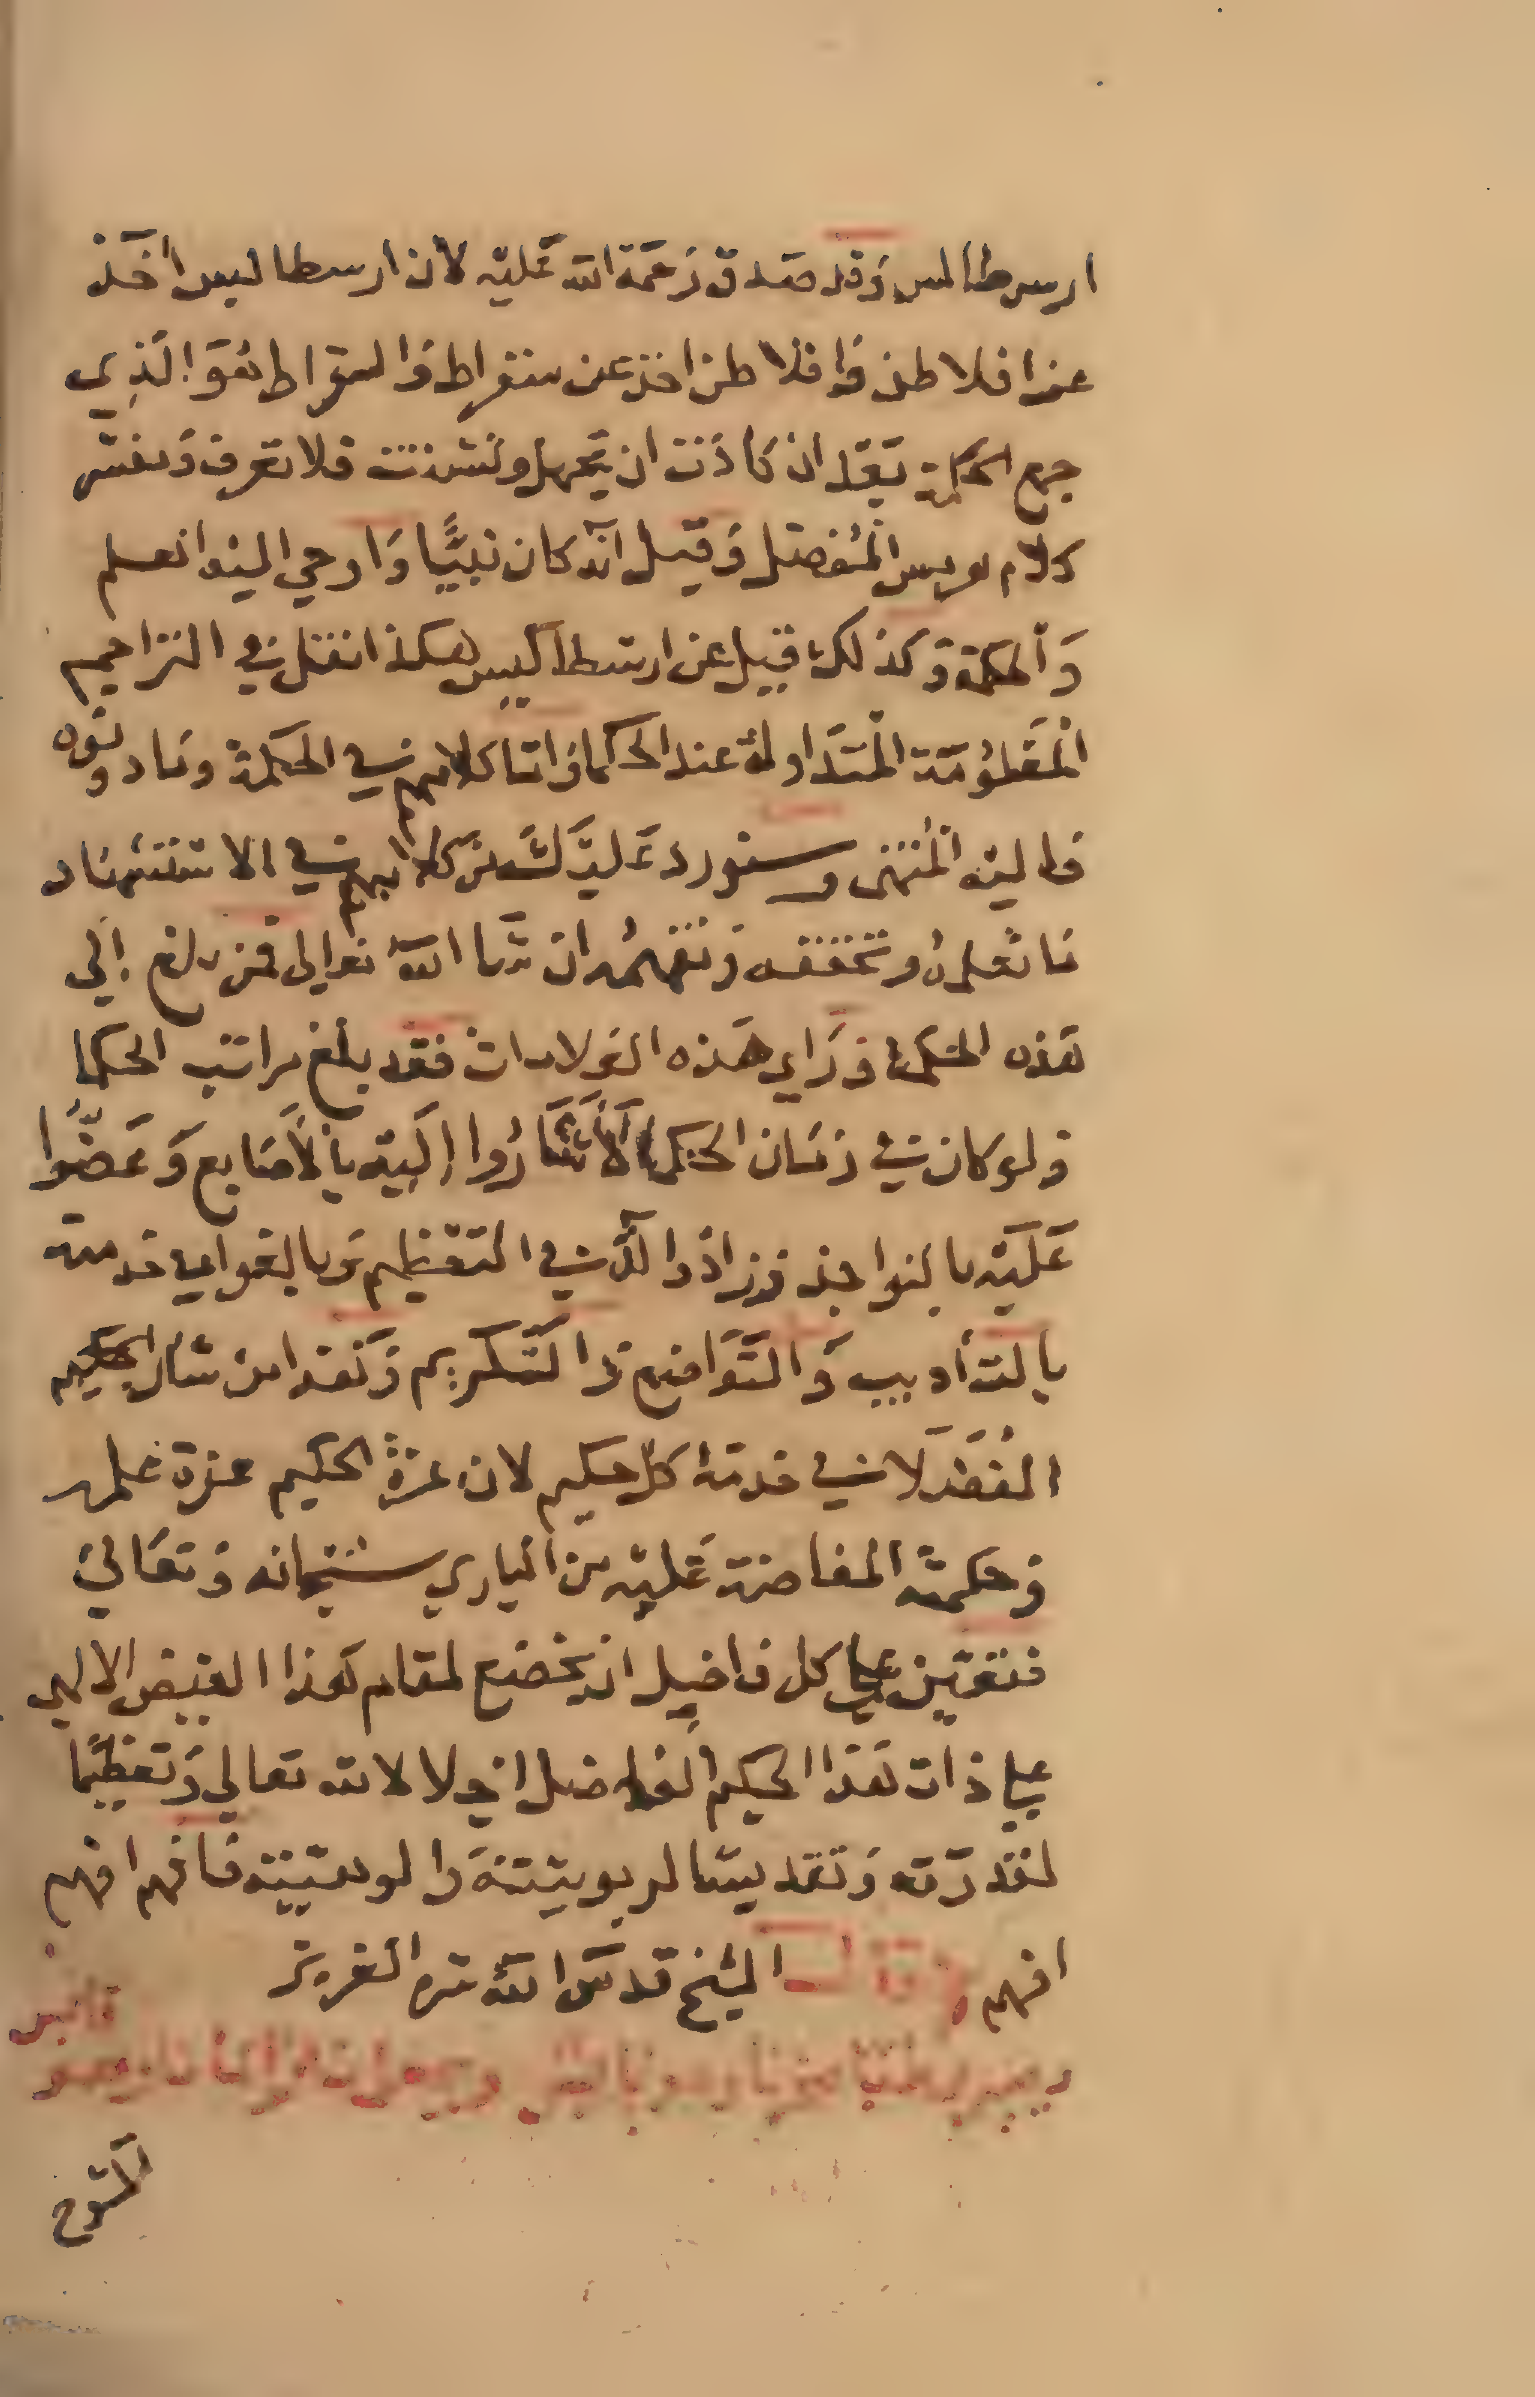 ارسطالس وقد صدق رحمة الله عليه لان ارسطاليس اخذ
عن افلاطن وافلاطن اخذ عن سقراط والسقراط هو الذي
جمع الحكمة بعد ان كادت ان تجهل وتشتت فلا تعرف وفسر
كلام هرمس المفضل وقيل انه كان نبيًا واوحي اليه العلم
والحكمة وكذلك قيل عن ارسطاليس هكذا نقل في التراجيم
المعلومة المتداولة عند الحكما واما كلامهم في الحكمة وما دونوه
فاليه المنتهى وسنورد عليك من كلامهم في الاستشهاد
ما تعلمه وتحققه وتفهمه ان شا الله تعالى فمن بلغ إلي
هذه الحكمة وراي هذه الولادات فقد بلغ مراتب الحكما
ولو كان في زمان الحكما لأشاروا إليه بالأصابع وعضّوا
عليه بالنواجذ وزادوا له في التعظيم وبالغوا في خدمته
بالتأديب والتواضع والتكريم وهذا من شان الحكيم
الفضلا في خدمة كل حكيم لان عزة الحكيم عزة علمه
وحكمته المفاضة عليه من الباري سبحانه وتعالى
فتعين علي كل فاضل ان يخضع لمقام هذا الفيض الالهي
علي ذات هذا الحكيم الفاضل اجلالا لله تعالي وتعظيمًا
لقدرته وتقديسا لربوبيته والوهيته فافهم افهم
افهم وقال الشيخ قدس الله سره العزيز